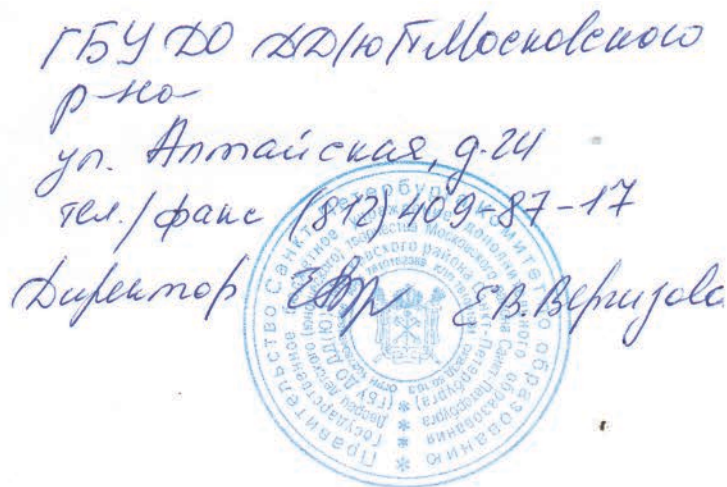 ГБУ ДО ДД(ю)Т Московского
р-на
ул. Алтайская, д. 24
тел./факс (812) 409-87-17
Директор Е.В. Вергизова
Правительство Санкт-Петербурга Комитет по образованию
Государственное бюджетное учреждение дополнительного образования
Дворец детского (юношеского) творчества Московского района Санкт-Петербурга
(ГБУ ДО ДД(Ю)Т Московского района Санкт-Петербурга)